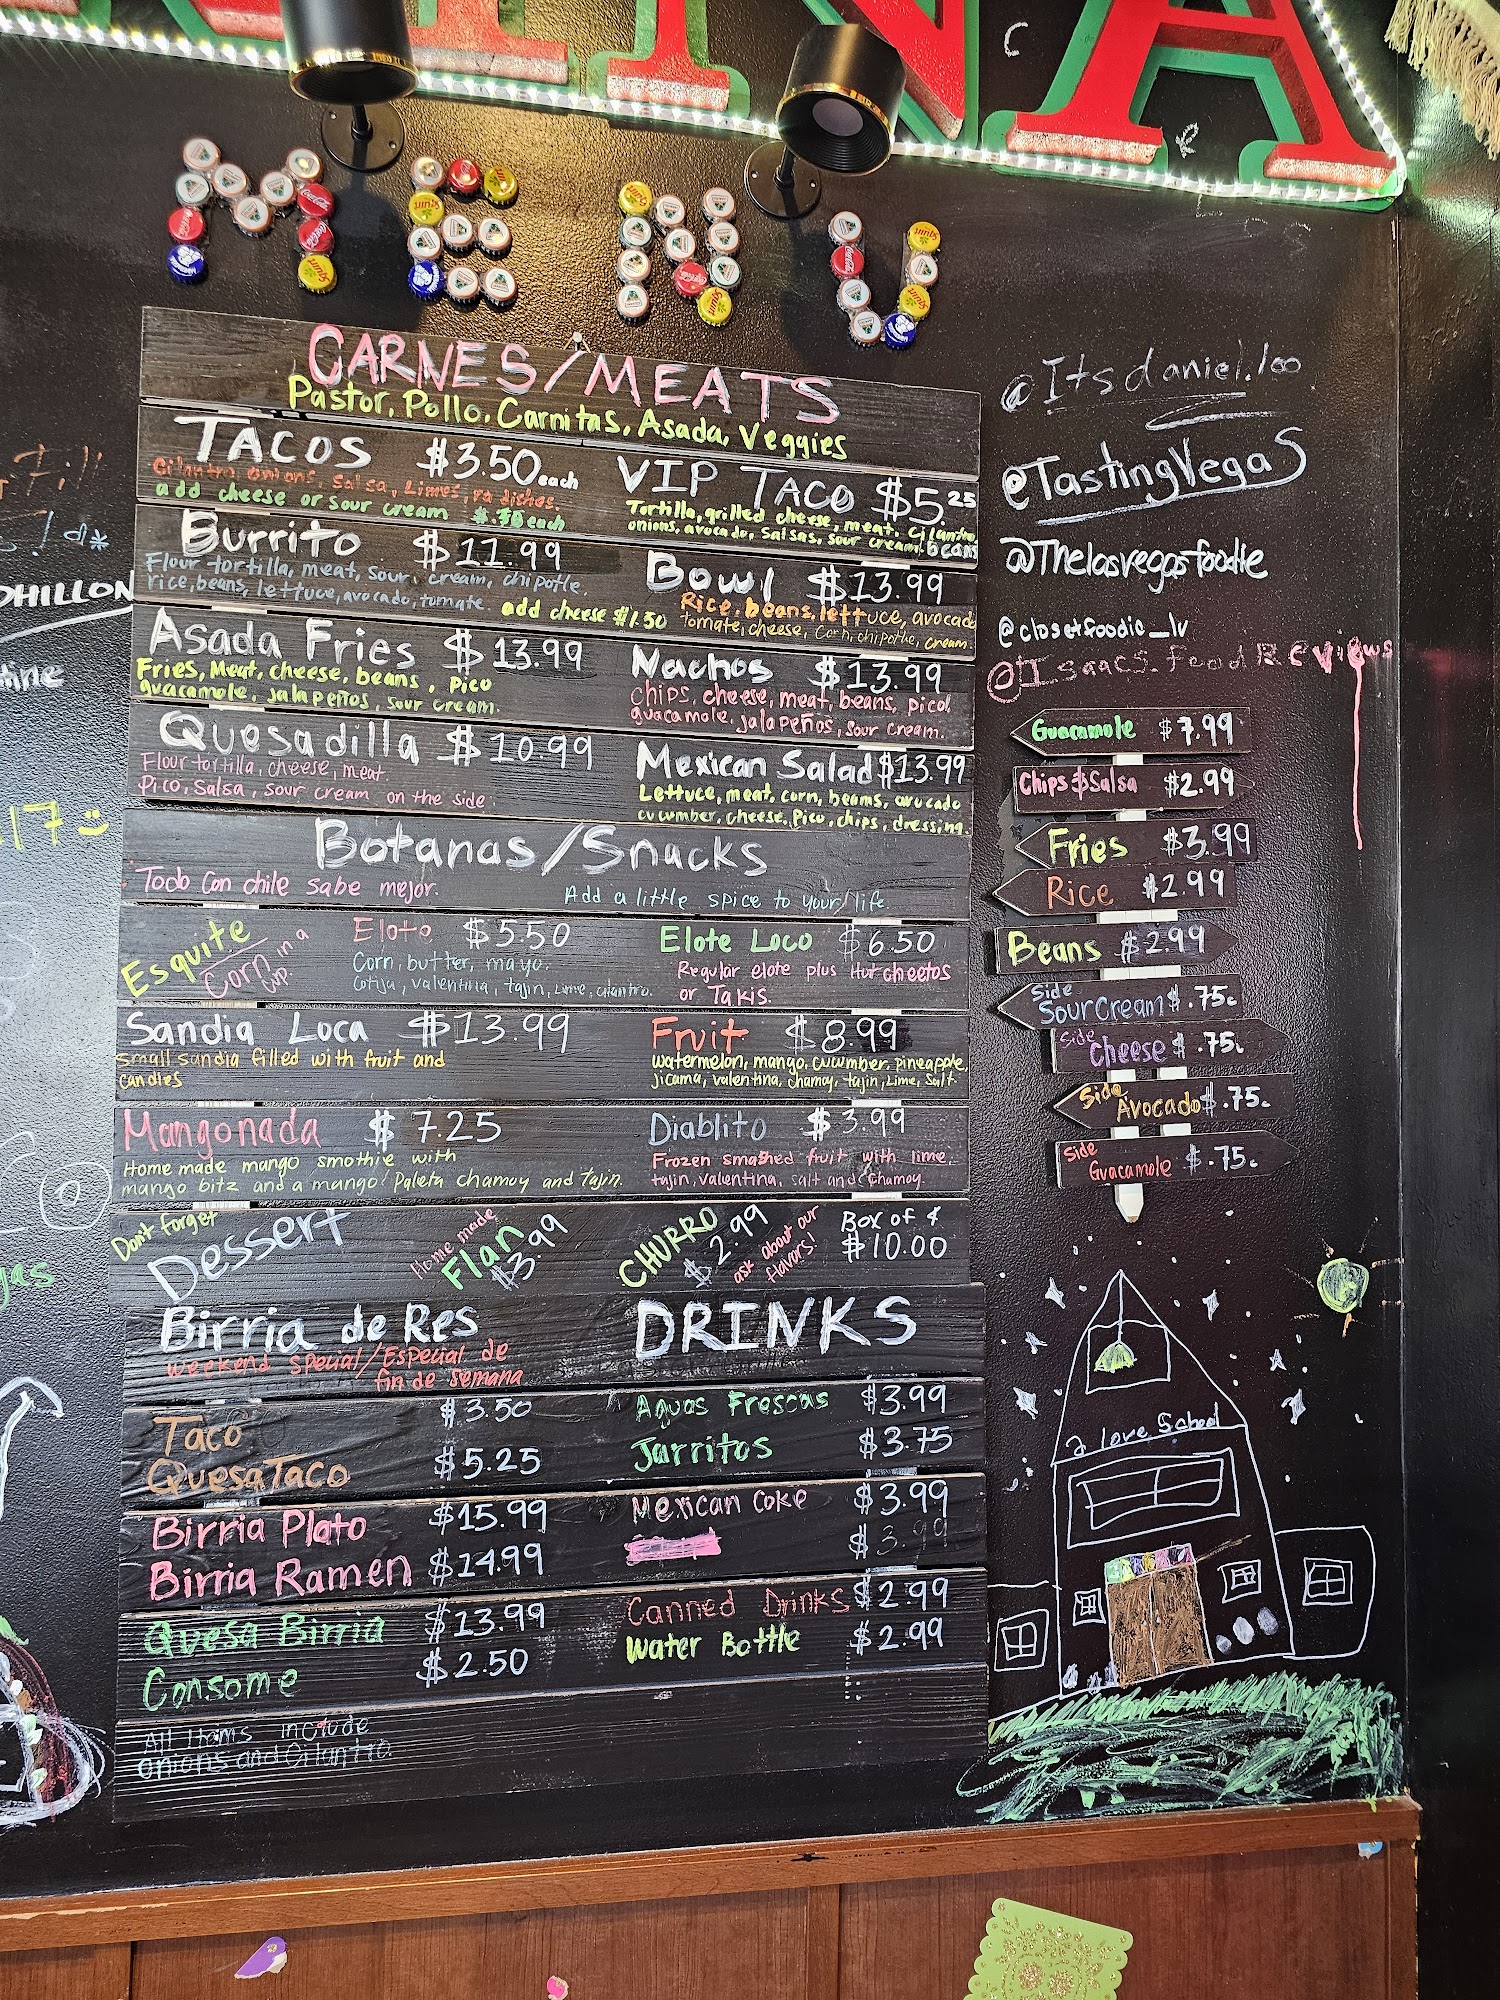 INA
MENU
CARNES/MEATS
Pastor, Pollo, Carnitas, Asada, Veggies
TACOS $3.50 each
Cilantro onions, salsa, Limes, radishes.
add cheese or sour cream each
VIP TACO $5.25
Tortilla, grilled cheese, meat, cilantro
onions, avocado, salsas, sour cream. beans
Burrito $11.99
Flour tortilla, meat, sour, cream, chipotle.
rice, beans, lettuce, avocado, tomate.
add cheese $1.50
Bowl $13.99
Rice, beans, lettuce, avocado
tomate, cheese, corn, chipotle, cream.
Asada Fries $13.99
Fries, Meat, cheese, beans, pico
guacamole, jalapeños, sour cream.
Nachos $13.99
Chips, cheese, meat, beans, pico,
guacamole, jalapeños, sour cream.
Quesadilla $10.99
Flour tortilla, cheese, meat.
Pico, salsa, sour cream on the side.
Mexican Salad $13.99
Lettuce, meat, corn, beans, avocado
cucumber, cheese, Pico, chips, dressing.
Botanas/Snacks
Todo Con chile sabe mejor.
Add a little spice to your life.
Esquite
Corn in a
cup
Elote $5.50
Corn, butter, mayo.
Cotija, valentina, tajin, lime, cilantro.
Elote Loco $6.50
Regular elote plus Hot cheetos
or Takis.
Sandia Loca $13.99
small sandia filled with fruit and
candies
Fruit $8.99
watermelon, mango, cucumber, pineapple,
jicama, valentina, chamoy, tajin, Lime, salt.
Mangonada $7.25
Home made mango smothie with
mango bitz and a mango Paleta chamoy and Tajin.
Diablito $3.99
Frozen smashed fruit with lime,
tajin, valentina, salt and chamoy.
Don't forget
Dessert
Home made
Flan
$3.99
CHURRO
$2.99
ask about our
flavors!
Box of 4
$10.00
Birria de Res
weekend special/Especial de
fin de semana
Taco $3.50
QuesaTaco $5.25
Birria Plato $15.99
Birria Ramen $14.99
Quesa Birria $13.99
Consome $2.50
All Items include
onions and Cilantro.
DRINKS
Aguas Frescas $3.99
Jarritos $3.75
Mexican Coke $3.99
$3.99
Canned Drinks $2.99
Water Bottle $2.99
@Itsdaniel.loo
@TastingVegas
@Thelasvegasfoodie
@closetfoodie_lv
@Isaacs.foodReviews
Guacamole $7.99
Chips & Salsa $2.99
Fries $3.99
Rice $2.99
Beans $2.99
Side
Sour Cream $.75¢
Side
Cheese $.75¢
Side
Avocado $.75¢
Side
Guacamole $.75¢
a love School
DHILLON